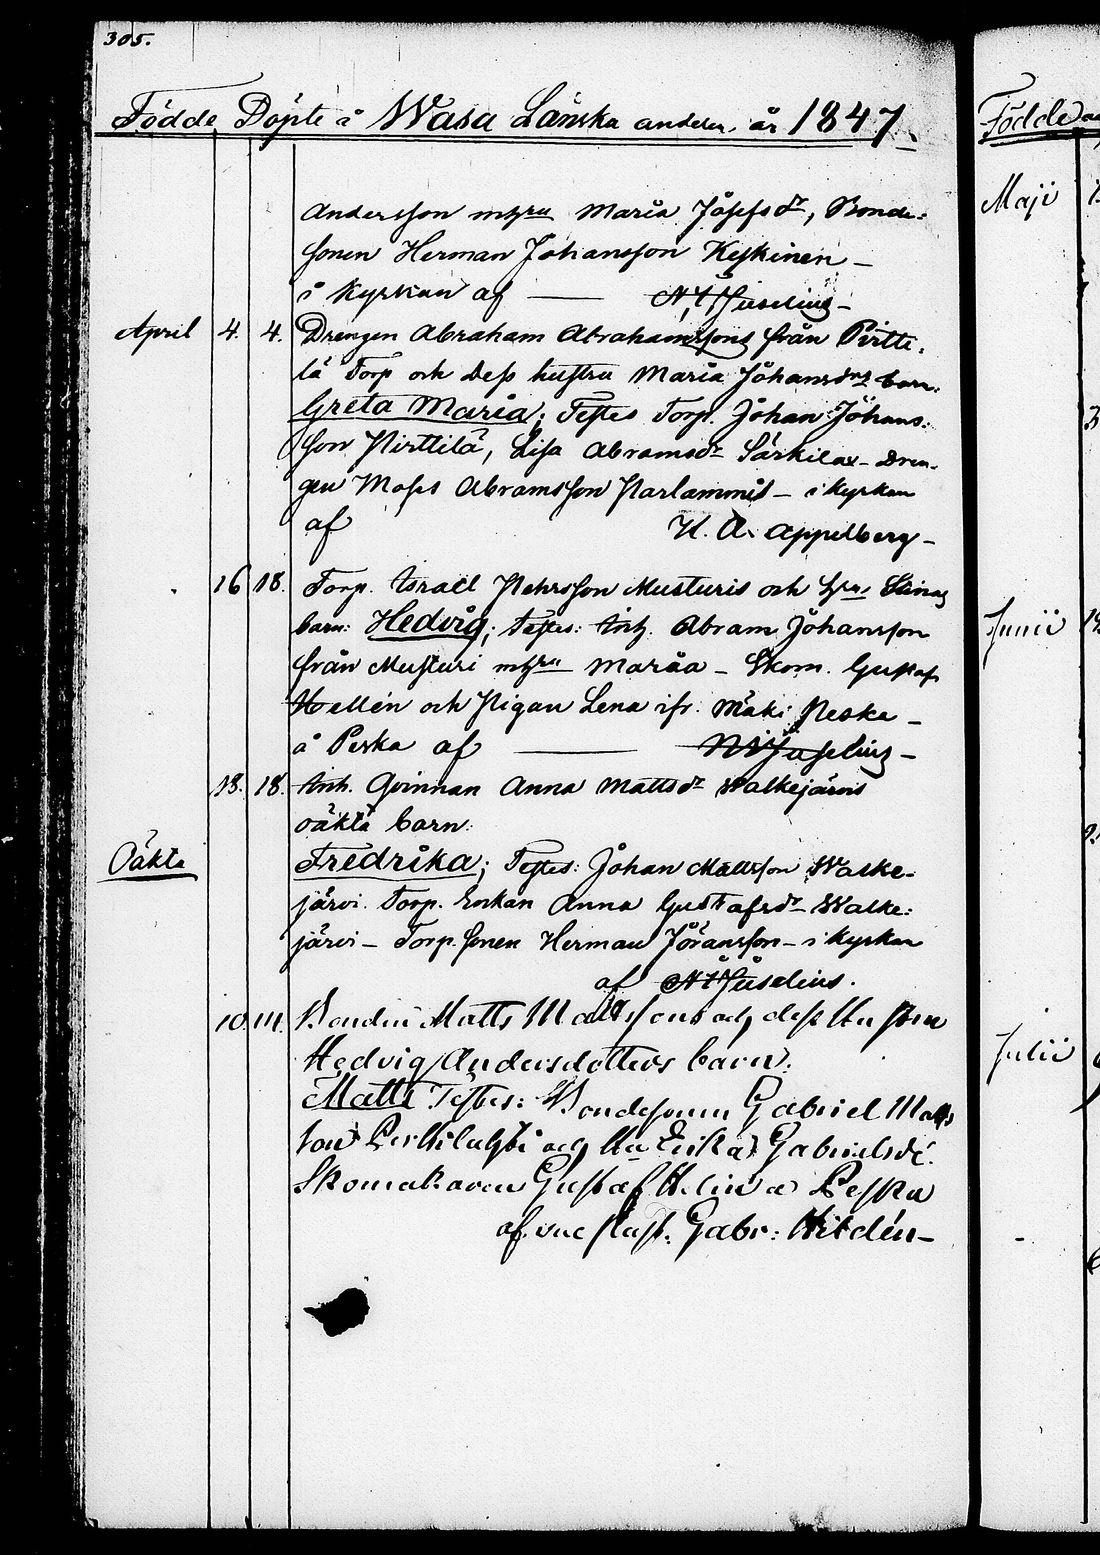 305.
Födde, Döpte å Wasa Länska andelen, år 1847.
Födde
Andersson m hru Maria Josefsdr, Bonde-
sonen Herman Johansson Keskinen –
i Kyrkan af — N. Juselius –
April 4. 4. Drengen Abraham Abrahamssons från Pirtti-
lä Torp och dess hustru Maria Johansdrs barn:
Greta Maria; Testes Torp. Johan Johans-
son Pirttilä, Lisa Abramsdr Särkilax – Dren-
gen Mats Abramsson Parlammis – i Kyrkan
af H. A. Appelberg –
16 18. Torp. Israël Pehrsson Musturis och hrus Stinas
barn: Hedvig; Testes: Inh. Abram Johansson
från Musturi m hru Maria – Skom. Gustaf
Hellén och Pigan Lena ifr. Mäki Peska –
å Peska af — N. Juselius –
18. 18. Inh. Qvinnan Anna Mattsdr Walkejärvis
oäkta barn:
Oäkta Fredrika; Testes: Johan Mattsson Walke-
järvi. Torp. Enkan Anna Gustafsdr Walke-
järvi – Torp. sonen Herman Jöransson – i Kyrkan
af N. Juselius.
10. 11. Bonden Matts Mattssons och dess Hustru
Hedvig Andersdotters barn:
Matts Testes: Bondesonen Gabriel Matts
son och Hu Erika Gabrielsdr.
Skomakaren Gustaf Helin å Peska
af Past. Gabr: Hildén –
Maji
Junii
Julii